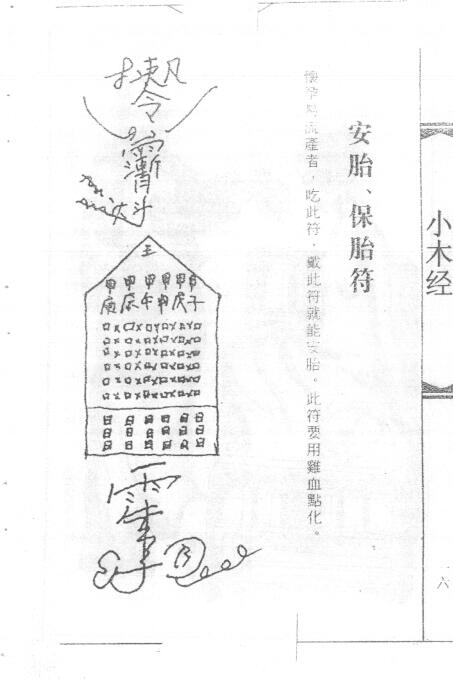 小木经
六
安胎、保胎符
懷孕易流產者，吃此符，戴此符就能安胎。此符要用雞血點化。
令
王
甲子
甲戌
甲申
甲午
甲辰
甲寅